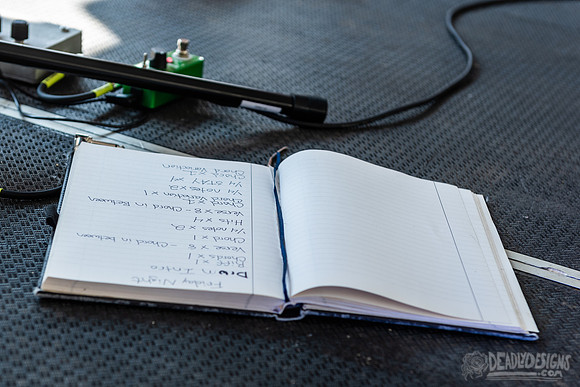 Friday Night
Drum Intro
Riff x 1
Chords x 1
Verse x 8 - Chord in between
Chord x 1
1/4 notes x 2
Hits x 4
Verse x 8 - Chord in Between
Chords x 1
Chord Variation x 1
1/4 notes x 2
1/4 STAY x 1
Chords x 1
Chord Variation
DEADLYDESIGNS
.COM